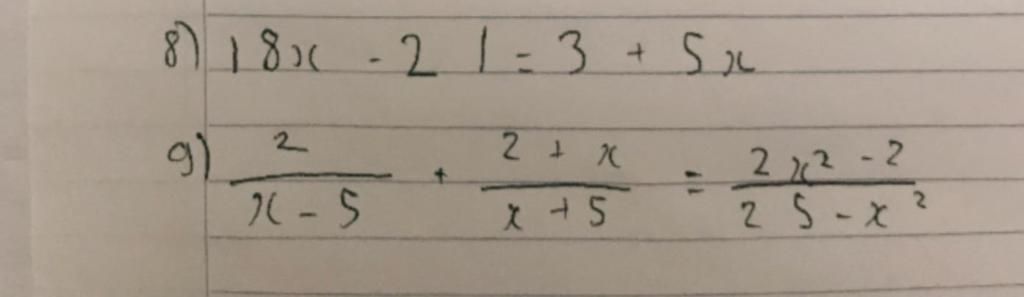 8) 18x - 21 = 3 + 5x
9) 2/(x - 5) + (2 + x)/(x + 5) = (2x² - 2)/(25 - x²)